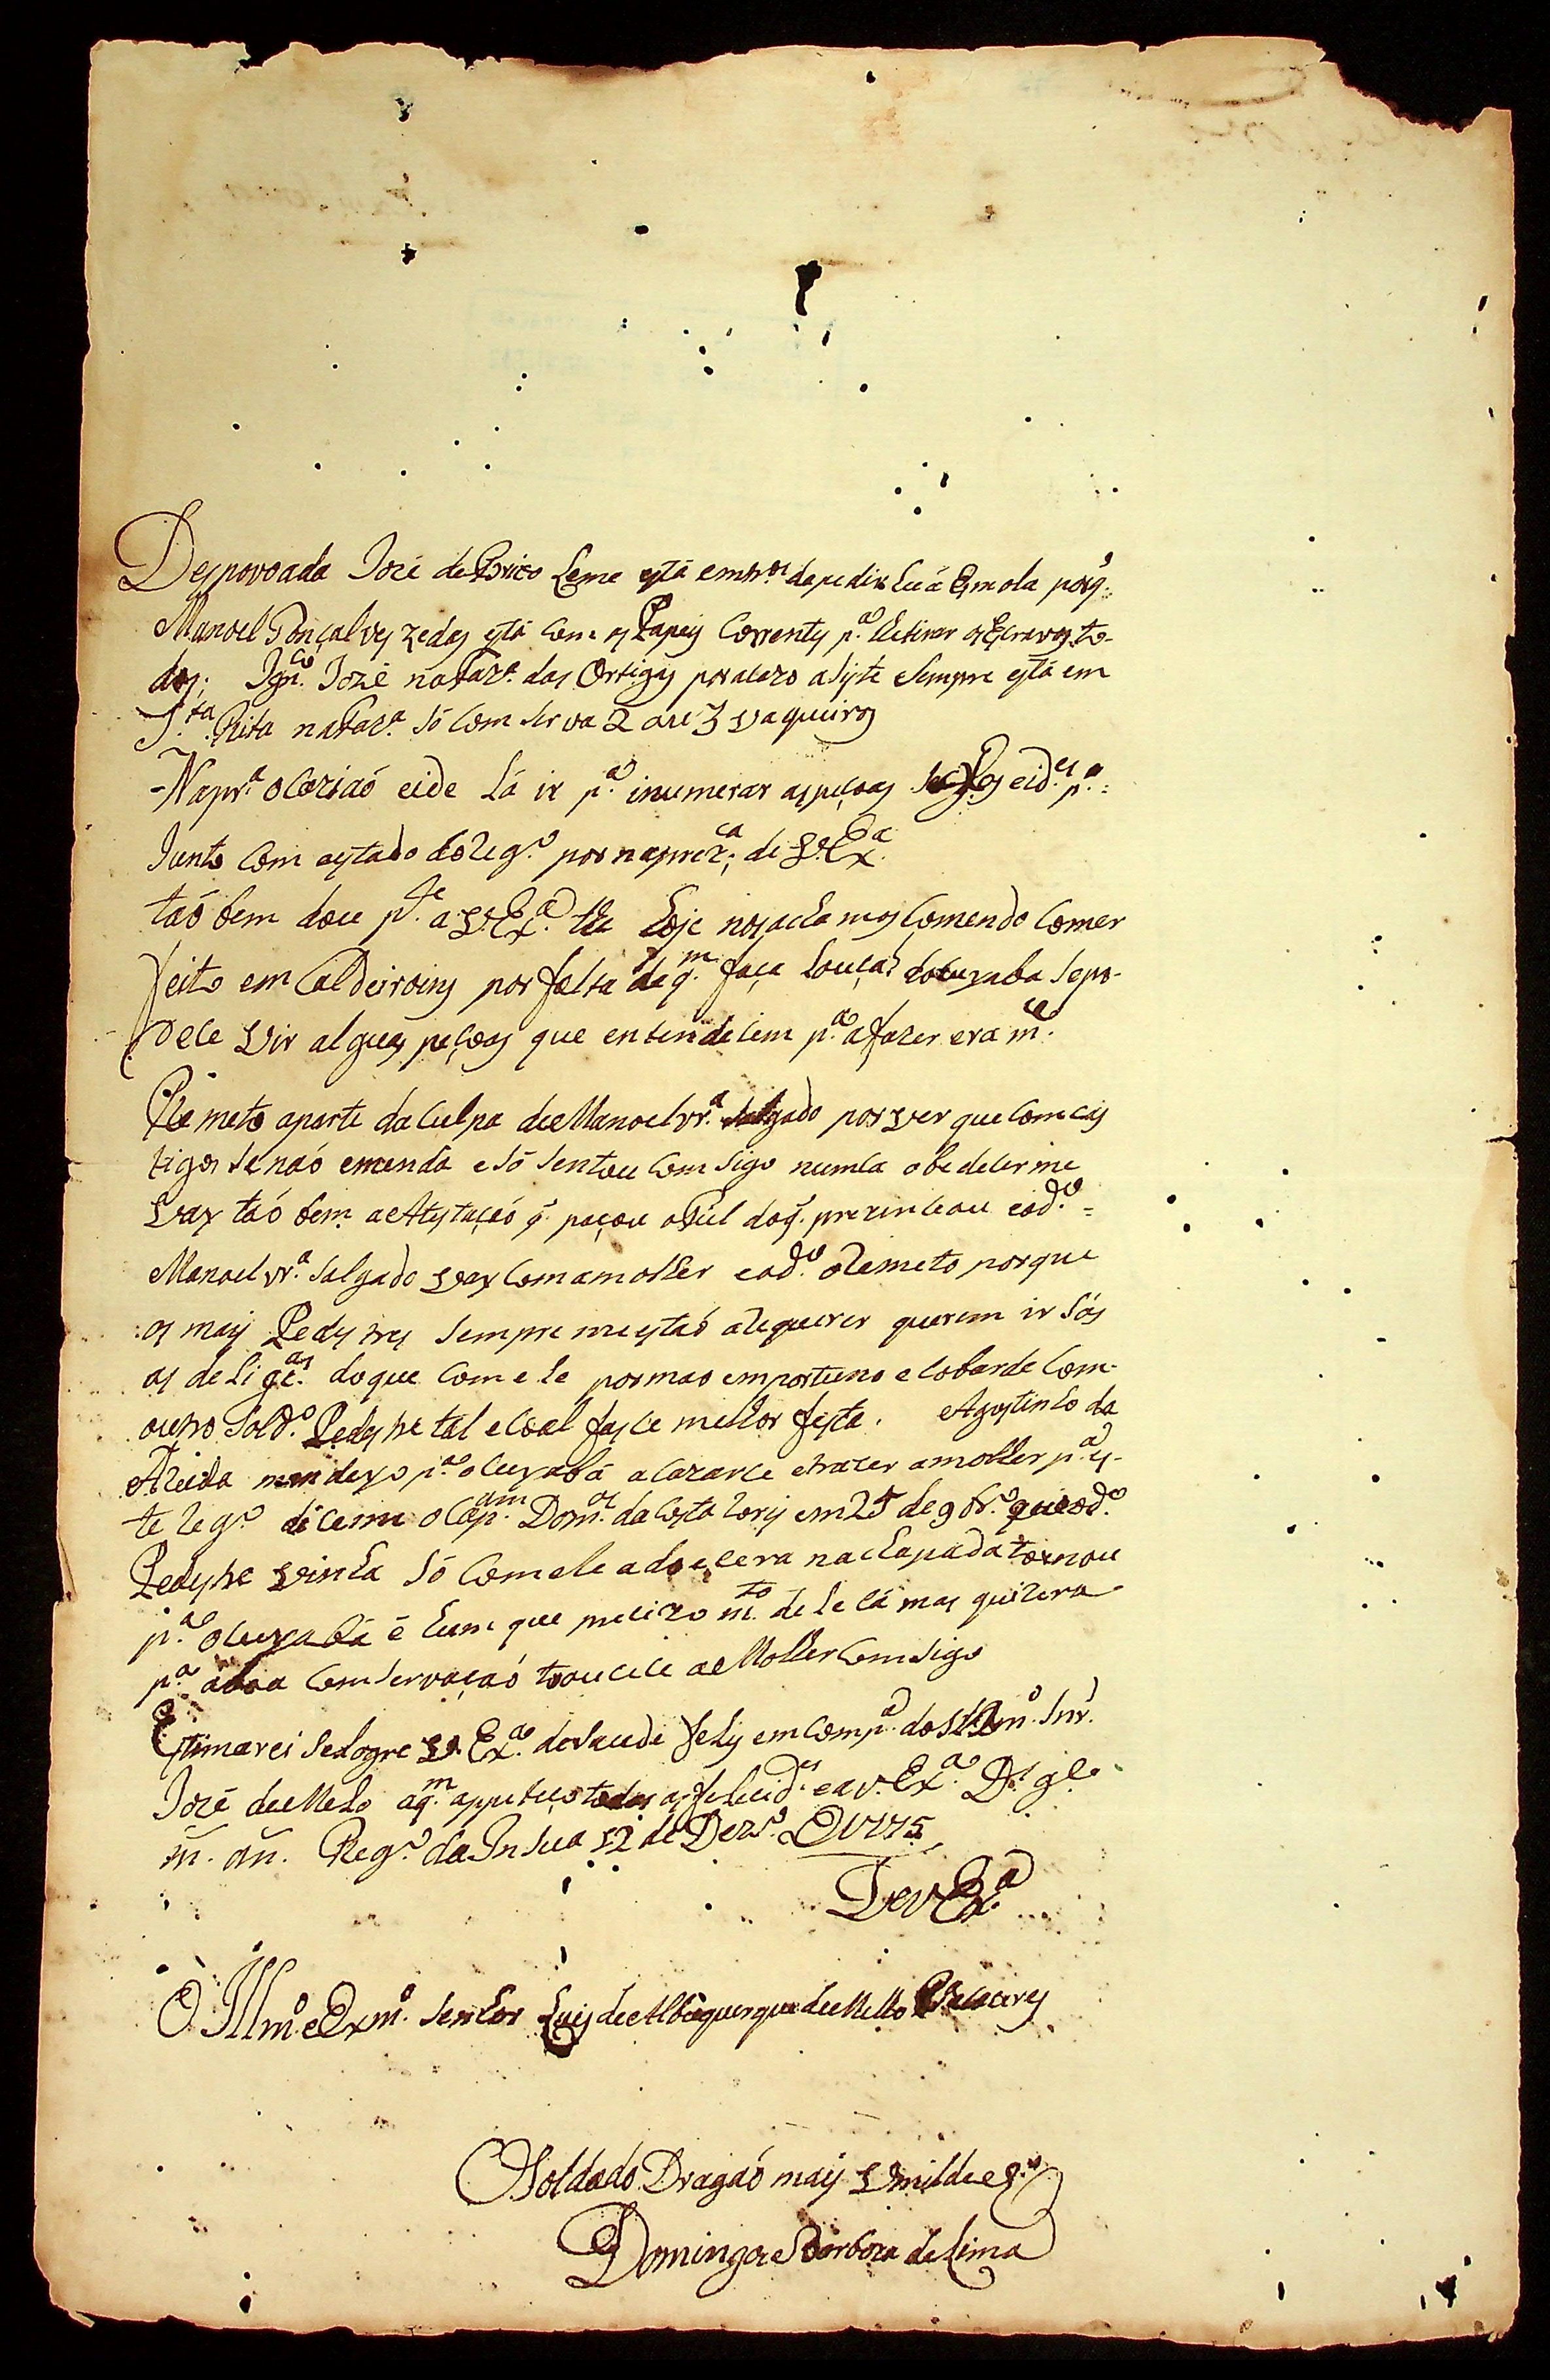 Despovoada Jozê de Brito Leme está em tr.os de pedir hũa Esmola porq̃
Manoel Gonçalves zedas está com os Papeis Correntes p.a Retirar os Escravos to-
dos; Ign.co Jozê na Faz.a das Ortigas por acazo asiste Sempre está em
S.ta Rita na Faz.a só com serva 2 ou 3 vaqueiros
Na pr.a ocaziaó eide Lá ir p.a inumerar as peçoas eid.es p.a
Junto com o estado do Reg.o por na prez.ca de V. Ex.a
taó bem dou p.te a V. Ex.a q̃ hoje nos achamos Comendo Comer
feito em Caldeiroins por falta de q.m faça Louça; do Cuyaba se po-
dece vir alguas peçoas que entendecem p.a a fazer era m.ce
Re meto a parte da Culpa de Manoel vr.a Salgado por ver que Com cas
tigos se naó emenda e só sentou Com sigo nunca obedecerme
vay taó bem a Atestaçaó q̃ paçou o Fiel do q̃ prezenceou e o d.o
Manoel vr.a Salgado vay Com a molher e o d.o o Remeto por que
os mais Pedestres sempre me estaó a Requerer querem ir sós
as delig.as do que Com ele por mao emportuno e cobarde Com
outro Sold.o Pedestre tal e coal fasce melhor festa. Agostinho da
Almeida mandey o p.a o Cuyabá a cazarce e trazer a molher p.a es-
te Reg.o diceme o Cap.am Dom.os da Costa em 25 de 9br.o que o d.o
Pedestre vinha só Com ele adoecera na chapada tornou
p.a o Cuyabá ê hum que precizo m.to dele cá mas quizera
p.a a boa Comservaçaó trouxece a Molher Com sigo
Estimarei se Logre V. Ex.a de saude felis em Comp.a do Ill.mo Snr.
Jozê de Mello a q.m appeteço todas as felecid.es e a V. Ex.a D.s g.e
m. an. Reg.o da Insua 12 de Dezr.o D 1775
De V Ex.a
O Illm.o e Exm.o Senhor Luis de Albuquerque de Mello Pr.a Caceres
O Soldado Dragaó mais Umilde
Domingos Barboza de Lima